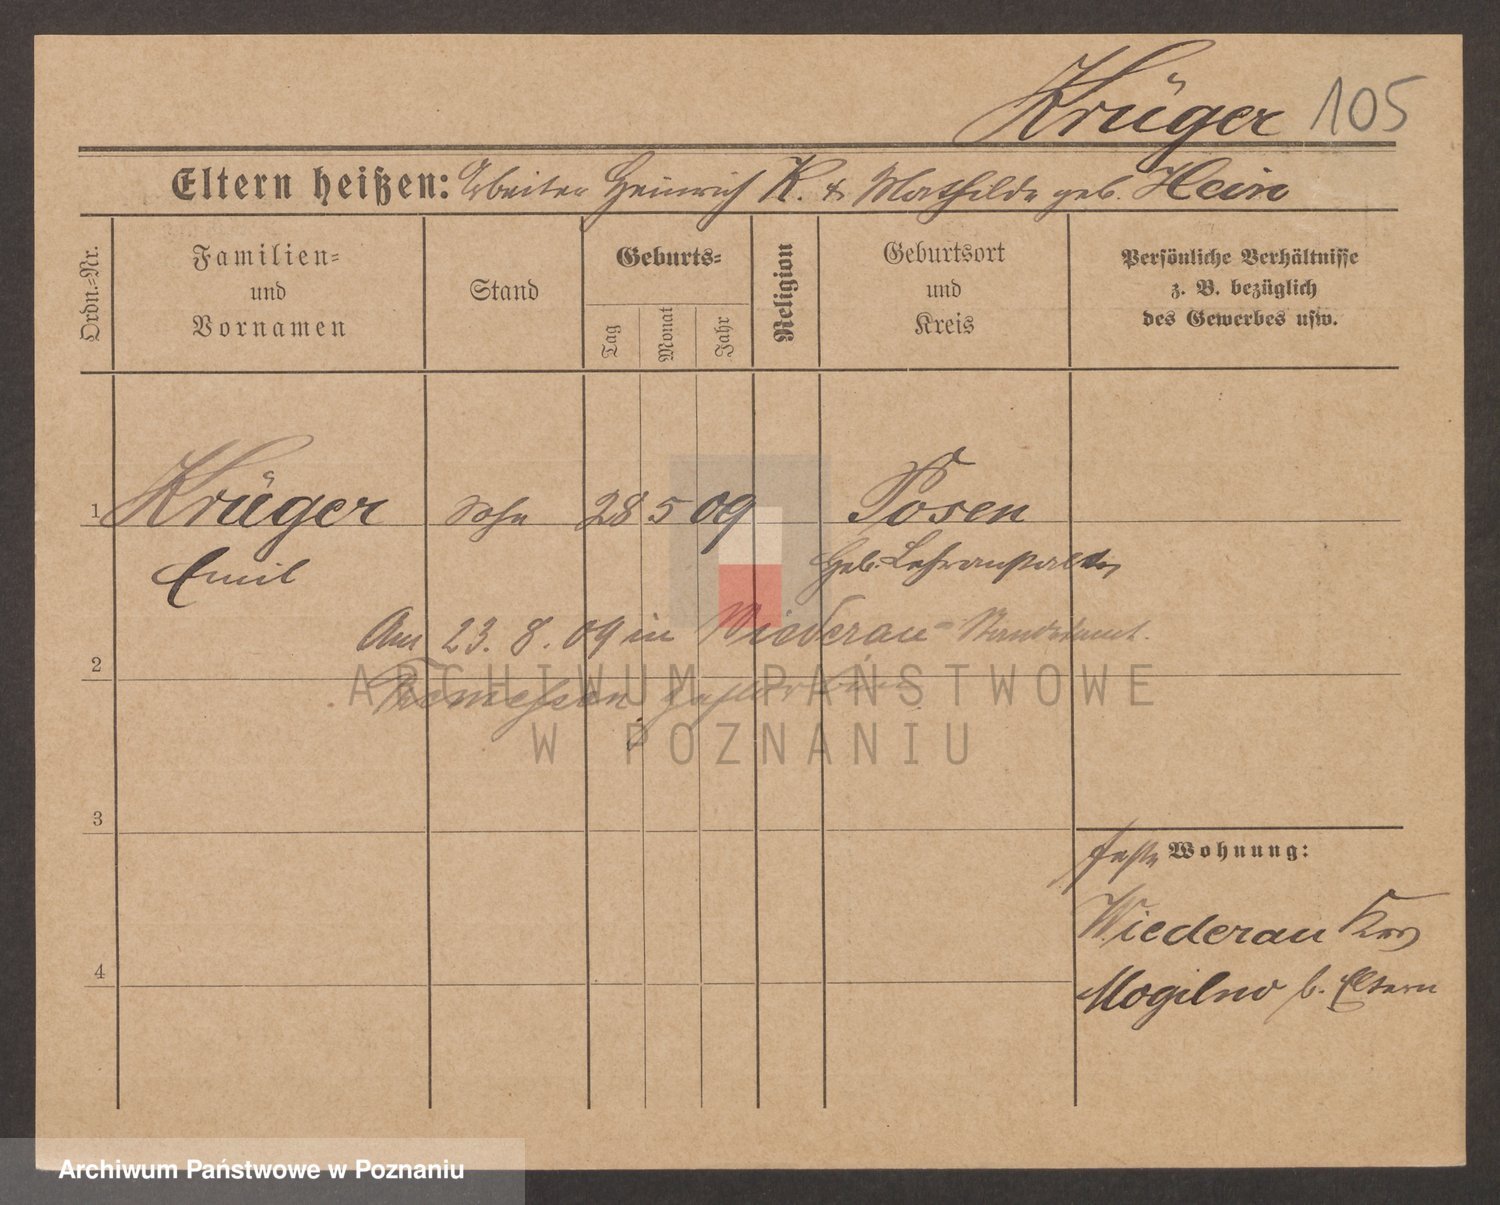 Krüger 105
Eltern heißen: Arbeiter Heinrich K. & Mathilde geb. Hein
Ordn.-Nr.
Familien-
und
Vornamen
Stand
Geburts-
Tag
Monat
Jahr
Religion
Geburtsort
und
Kreis
Persönliche Verhältnisse
z. B. bezüglich
des Gewerbes usw.
1 Krüger Sohn 28 5 09 Posen
Emil Heb. Lehranstalt
Am 23. 8. 09 in Wiederau - Standesamt
2
Tremessen
ARCHIWUM PAŃSTWOWE
W POZNANIU
3
feste Wohnung:
Wiederau Krs
4
Mogilno b. Eltern
Archiwum Państwowe w Poznaniu